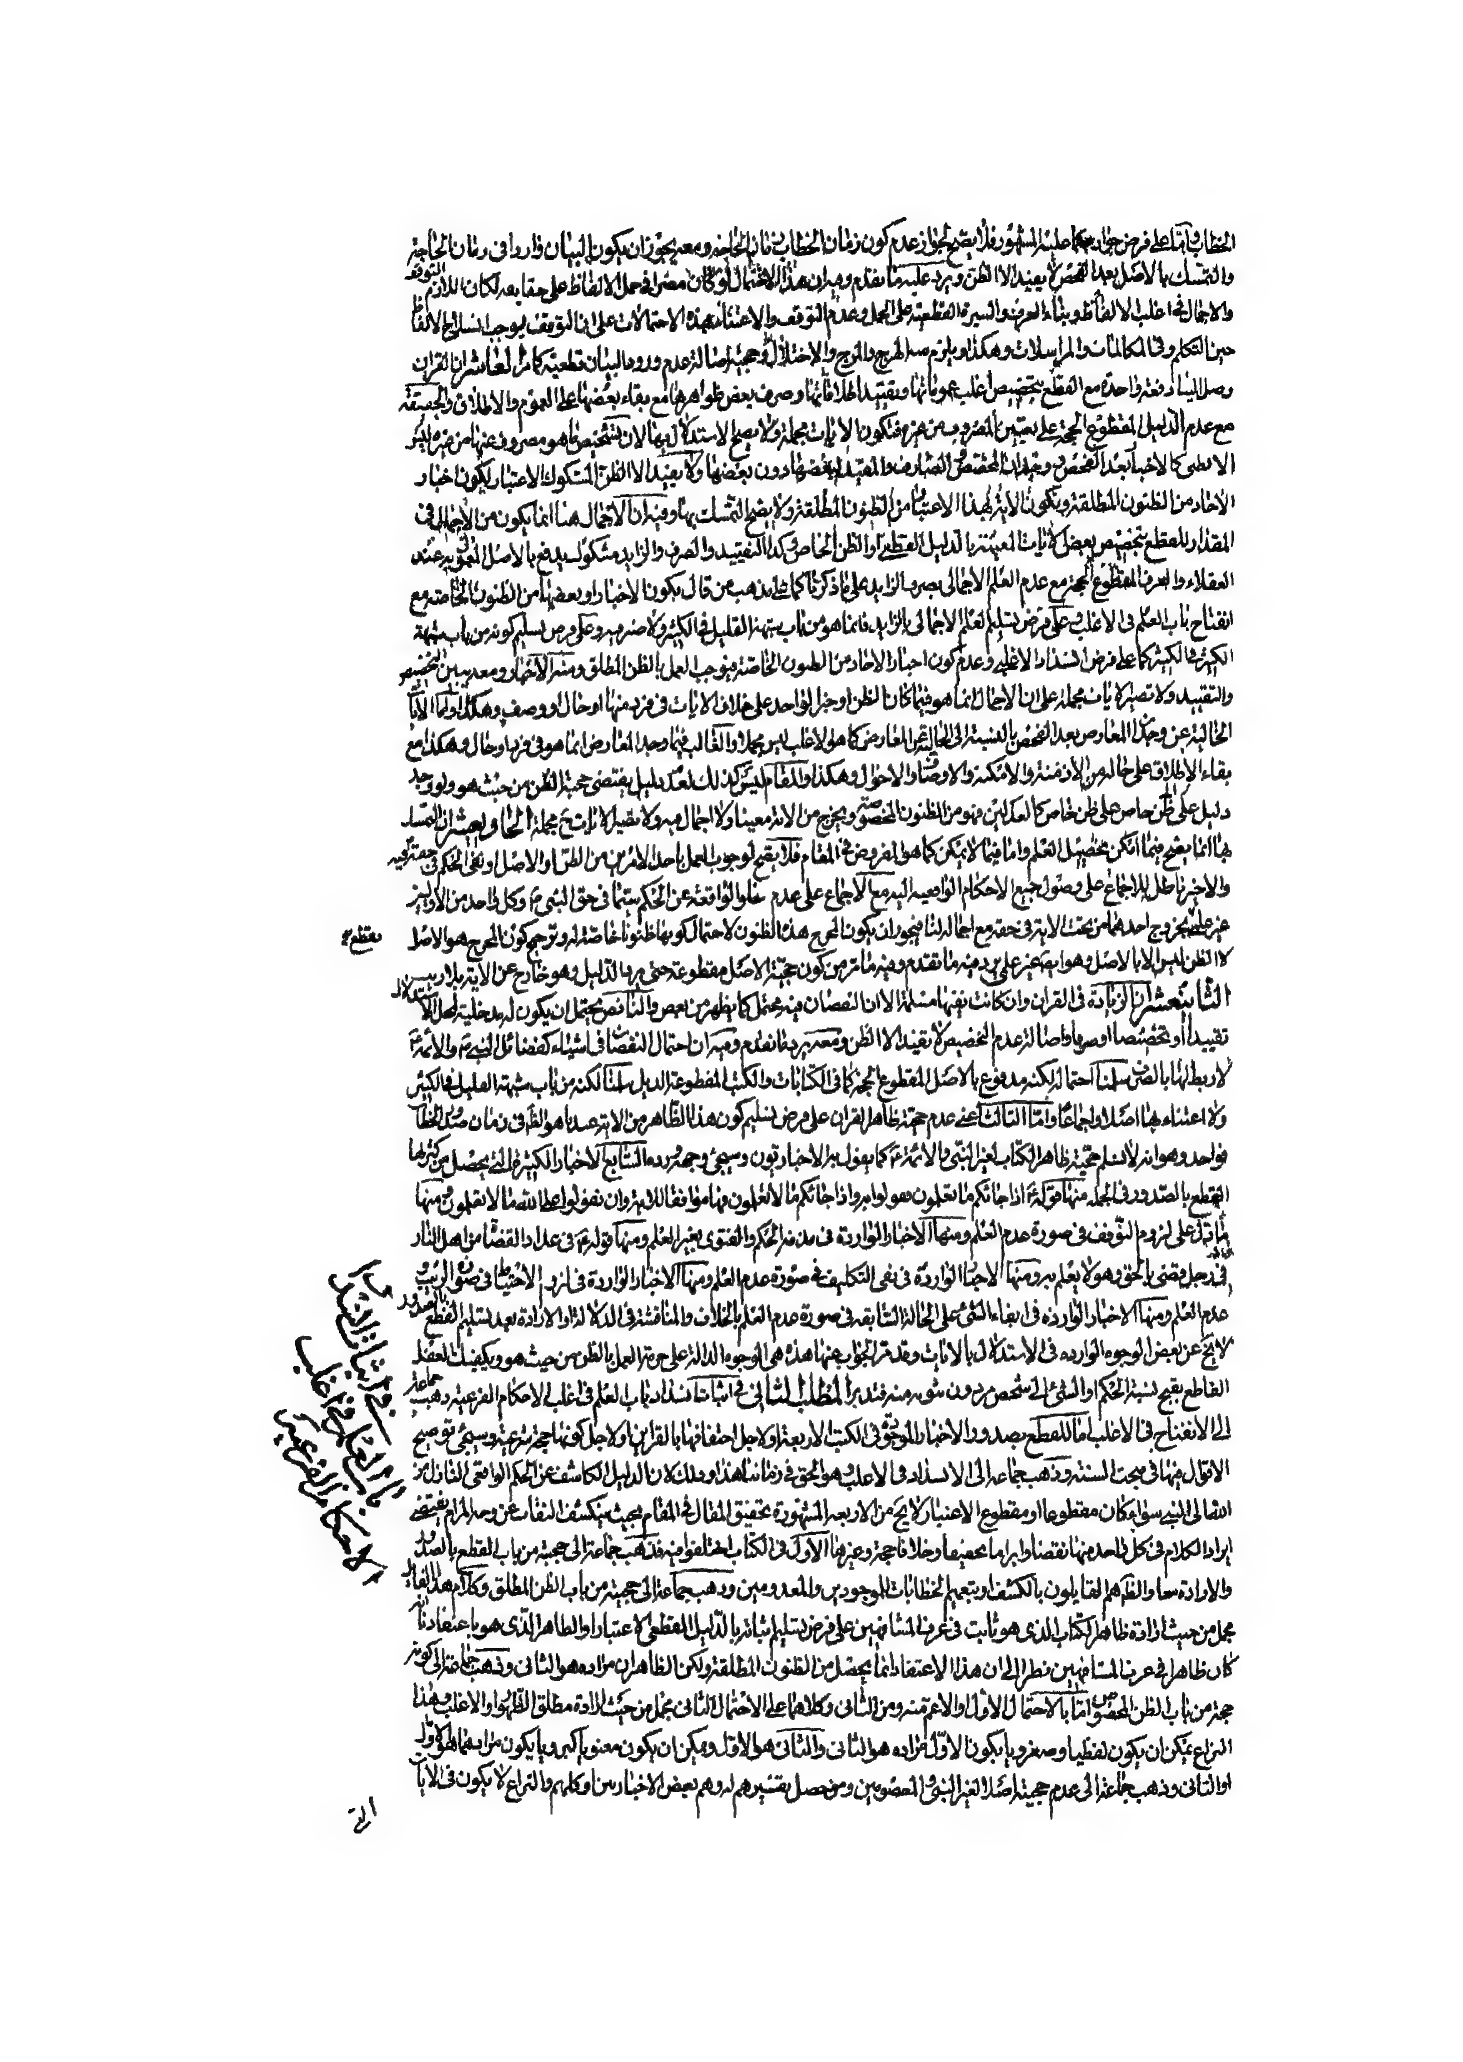 الخطاب وامّا على فرض جوازه كما عليه المشهور فلا يصحّ لجواز عدم كون زمان الخطاب زمان الحاجة ومعه يجوز ان يكون البيان واردا فى زمان الحاجة
والتمسّك بالاصل بعد الفحص لا يفيد الا الظنّ ويرد عليه ما تقدّم وفيه ان هذا الاحتمال لو كان مضرا فى حمل الالفاظ على حقايقه لكان اللازم التوقف
والاجمال فى اغلب الالفاظ وبناء العرف والسيرة القطعية على الحمل وعدم التوقف والاعتناء بهذه الاحتمالات على ان التوقف يوجب انسداد الالفاظ
حين التكلم وفى المكالمات والمراسلات وهكذا ويلزم منه الهرج والمرج والاختلال وحجية اصالة عدم ورود البيان قطعية كما مرّ الخامس عشر ان القران
وصل الينا دفعة واحدة مع القطع بتخصيص اغلب عموماتها وتقييد اطلاقاتها وصرف بعض ظواهرها مع بقاء بعضها على العموم والاطلاق والحقيقة
مع عدم الدليل المقطوع الحجة على تعيين المصروف من غيره فتكون الايات مجملة ولا يصحّ الاستدلال بها لان تشخيص ما هو مصروف عنها من غيره ليس
الا بظنى كالاخبار بعد الفحص ووجدان المخصص والصارف والمقيد لبعضها دون بعضها ولا يفيد الا الظن المشكوك الاعتبار لكون اخبار
الاحاد من الظنون المطلقة وتكون الاية بهذا الاعتبار من الظنون المطلقة ولا يصح التمسّك بها وفيه ان الاجمال هنا انما يكون من الاجمال فى
المقدار للقطع بتخصيص بعض الايات المعينة بالدليل القطعى او الظن الخاص وكذا التقييد والصرف والزايد مشكوك يدفع بالاصل المعمول به عند
العقلاء والعرف المقطوع الحجة مع عدم العلم الاجمالى بصرف الزايد على ما ذكرنا كما هو مذهب من قال بكون الاخبار او بعضها من الظنون الخاصّة مع
انفتاح باب العلم فى الاغلب وعلى فرض تسليم العلم الاجمالى بالزايد فانما هو من باب شبهة القليل فى الكثير ولا ضير فيه وعلى فرض تسليم كونه من باب شبهة
الكثير فى الكثير كما على فرض انسداد الاغلب وعدم كون اخبار الاحاد من الظنون الخاصّة فيوجب العمل بالظن المطلق ومنه الاخبار ومعه يتبين التخصيص
والتقييد ولا تصير الايات مجملة على ان الاجمال انما هو فيما كان الظن او خبر الواحد على خلاف الايات فى فرد منها او حال او وصف وهكذا واما الايات
الخالية عن وجدان المعارض بعد الفحص بالنسبة الى الخالية عن المعارض كما هو الاغلب ليس مجملا والغالب فيما وجد المعارض انما هو فى فرد او حال وهكذا مع
بقاء الاطلاق على حاله من الازمنة والامكنة والاوصاف والاحوال وهكذا والمقام ليس كذلك لعدم دليل يقتضى حجية الظن من حيث هو ولو وجد
دليل على ظن خاص على ظن خاص كالعدلين فهو من الظنون المخصوصة ويخرج من الاية معينا ولا اجمال فيه ولا تصير الايات ح مجملة الحادى عشر ان التمسك
بها انما يصح فيما امكن تحصيل العلم واما فيما لا يمكن كما هو المفروض فى المقام فلا يصح لوجوب العمل باحد الامرين من الظن او الاصل او نفى الحكم فى حقه
والاخير باطل للاجماع على وصول جميع الاحكام الواقعية اليه مع الاجماع على عدم خلو الواقعة عن الحكم سيما فى حق النبى ص وكل واحد من الاولين
غير علم فخروج احدهما من تحت الاية فى حقه مع اجماله لنا فيجوز ان يكون المخرج هذه الظنون لاحتمال كونها ظنونا خاصّة له وترجيح كون المخرج هو الاصل
لا الظن ليس الا بالاصل وهو ايضا غير علمى يرد فيه ما تقدم وفيه ما مر من كون حجية الاصل مقطوعة حتى مر بالدليل وهو خارج عن الاية بلا ريب
الثانى عشر ان الزيادة فى القران وان كانت نفيها مسلمة الا ان النقصان فيه محتمل كما يظهر من بعض والناقص يحتمل ان يكون له مدخلية لهذه الاستدلال
تقييدا او تخصيصا او صرفا واصالة عدم التخصيص لا يفيد الا الظن ومعه يرد ما تقدم وفيه ان احتمال النقصان فى اشياء كفضائل النبى ص والائمة ع
لا ربط لها بالصرف سلمنا احتماله لكنه مدفوع بالاصل المقطوع الحجة كما فى الكتابات والكتب المقطوعة الدليل سلمنا لكنه من باب شبهة القليل فى الكثير
ولا اعتناء بها اصلا واجماعا وامّا الثالث اعنى عدم حجية ظاهر القران على فرض تسليم كون هذا الظاهر من الاية عندنا هو الظاهر فى زمان صدور الخطاب
فواحد وهو انه لا نسلم حجية ظاهر الكتاب لغير النبى والائمة ع كما يقول به الاخباريون وسيجئ وجهه ورده السابع الاخبار الكثيرة التى يحصل من كثرتها
القطع بالصدور فى الجملة منها قوله ع اذا جائكم ما تعلمون فقولوا به واذا جائكم ما لا تعلمون فها موافقا للاية وان تقولوا على الله ما لا تعلمون ومنها
ما دل على لزوم التوقف فى صورة عدم العلم ومنها الاخبار الواردة فى مذمة الحكم والفتوى بغير العلم ومنها قوله ع فى عداد القضاة من اهل النار
رجل قضى بالحق وهو لا يعلم به ومنها الاخبار الواردة فى نفى التكليف فى صورة عدم العلم ومنها الاخبار الواردة فى لزوم الاحتياط فى صورة الريب و
عدم العلم ومنها الاخبار الواردة فى ابقاء الشئ على الحالة السابقة فى صورة عدم العلم بالخلاف والمناقشة فى الدلالة او الارادة بعد تسليم القطع بالصدور
لا يخ عن بعض الوجوه الواردة فى الاستدلال بالايات وقد مر الجواب عنها هذه هى الوجوه الدالة على حرمة العمل بالظن من حيث هو ويكفيك العقل
القاطع بقبح نسبة الحكم او الشئ الى شخص بدون ثبوته منه فتدبر المطلب الثانى فى اثبات انسداد باب العلم فى اغلب الاحكام الفرعية ذهب جماعة
الى الانفتاح فى الاغلب اما للقطع بصدور الاخبار الموثقة فى الكتب الاربعة او لاجل احتفافها بالقراين او لاجل كونها حجة شرعية وسيجئ توضيح
الاقوال فيها فى مبحث السنة وذهب جماعة الى الانسداد فى الاغلب وهو الحق فى زماننا هذا وذلك لان الدليل الكاشف عن الحكم الواقعى النازل من
الله الى النبى سواء كان مقطوعا او مقطوع الاعتبار لا يخ من الاربعة المشهورة تحقيق المقال فى المقام بحيث ينكشف النقاب عن وجه المرام يقتضى
ايراد الكلام فى كل واحد منها نقضا وابراما تحقيقا وخلافا حجة وغيرها الاول فى الكتاب اختلفوا فيه فذهب جماعة الى حجيته من باب القطع بالصدور
والارادة معا والظاهر هم القايلون بالكشف او بتعميم الخطابات للموجودين والمعدومين وذهب جماعة الى حجيته من باب الظن المطلق وكلام هذا القائل
مجمل من حيث ارادة ظاهر الكتاب الذى هو ثابت فى عرف المشافهين على فرض تسليم اثباته بالدليل القطعى الاعتبار او الظاهر الذى هو باعتقادنا انه
كان ظاهرا فى عرف المشافهين نظرا الى ان هذا الاعتقاد انما يحصل من الظنون المطلقة ولكن الظاهر ان مراده هو الثانى وذهب جماعة الى كونه
حجة من باب الظن المخصوص اما بالاحتمال الاول او الاعم منه ومن الثانى وكلاهما على الاحتمال الثانى مجمل من حيث ارادة مطلق الظهور او الاغلب وهذا
النزاع يمكن ان يكون لفظيا وصغرويا بكون الاول مراده هو الثانى والثانى هو الاول ويمكن ان يكون معنويا كبرويا بكون مرادهما هو الاول
او الثانى وذهب جماعة الى عدم حجيته اصلا لغير النبى والمعصومين ومن حصل بتفسيرهم له وهم بعض الاخباريين او كلهم والنزاع لا يكون فى الايات
يقطع
فى اثبات انسداد
باب العلم فى اغلب
الاحكام الفرعية